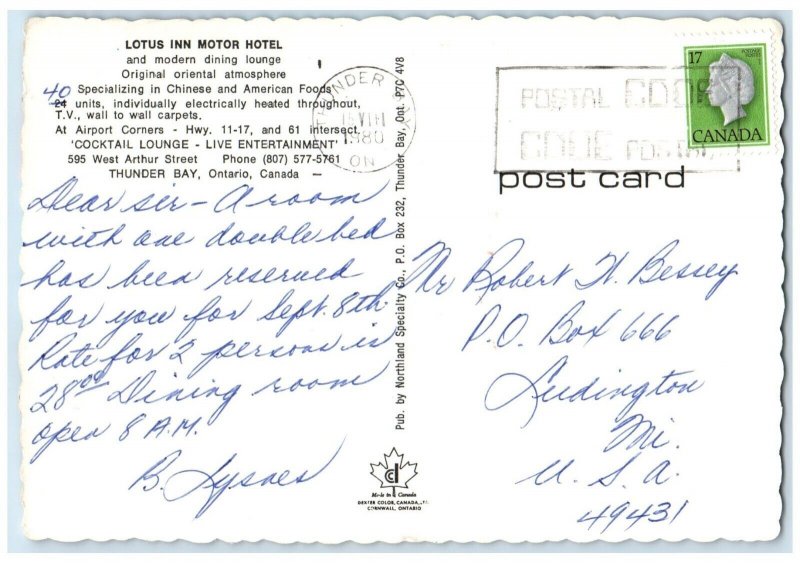 LOTUS INN MOTOR HOTEL
and modern dining lounge
Original oriental atmosphere
Specializing in Chinese and American Foods
40
24 units, individually electrically heated throughout,
T.V., wall to wall carpets.
At Airport Corners - Hwy. 11-17, and 61 intersect.
'COCKTAIL LOUNGE - LIVE ENTERTAINMENT'
595 West Arthur Street Phone (807) 577-5761
THUNDER BAY, Ontario, Canada —
Dear sir - A room
with one double bed
has been reserved
for you for Sept. 8th.
Rate for 2 persons is
28.00 Dining room
open 8 A.M.
Pub. by Northland Specialty Co., P.O. Box 232, Thunder Bay, Ont. P7C 4V8
THUNDER BAY
1980
ON
POSTAL CODE
CODE POSTAL
17
CANADA
post card
Mr Robert H. Bessey
P.O. Box 666
Ludington
Mi.
U.S.A.
49431
Made in Canada
DEXTER COLOR, CANADA, LTD.
CORNWALL, ONTARIO